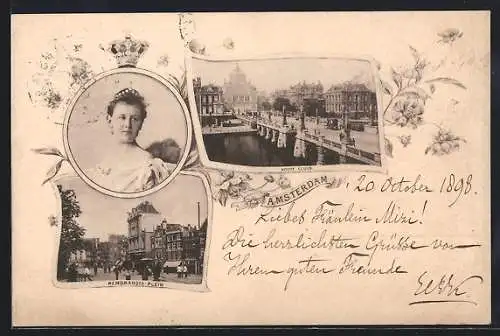 HOOGE SLUIS
AMSTERDAM
20 October 1898.
Liebes Fräulein Mizi!
Die herzlichsten Grüsse von
Ihrem guten Freunde
REMBRANDTS-PLEIN